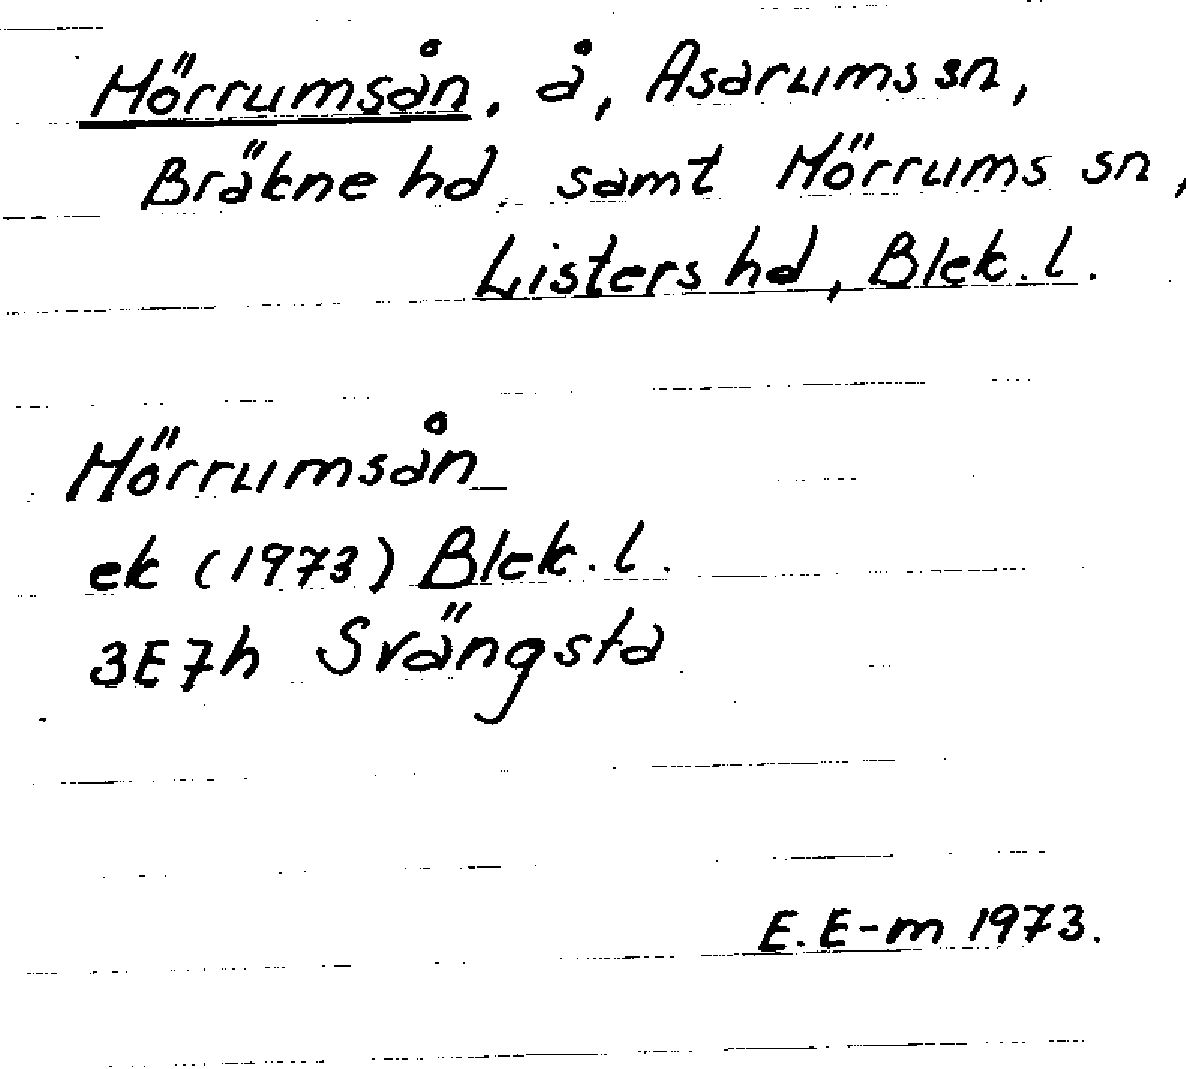 Mörrumsån, å, Asarums sn,
Bräkne hd, samt Mörrums sn,
Listers hd, Blek. l.
Mörrumsån
ek (1973) Blek. l.
3E7h Svängsta
E. E-m 1973.